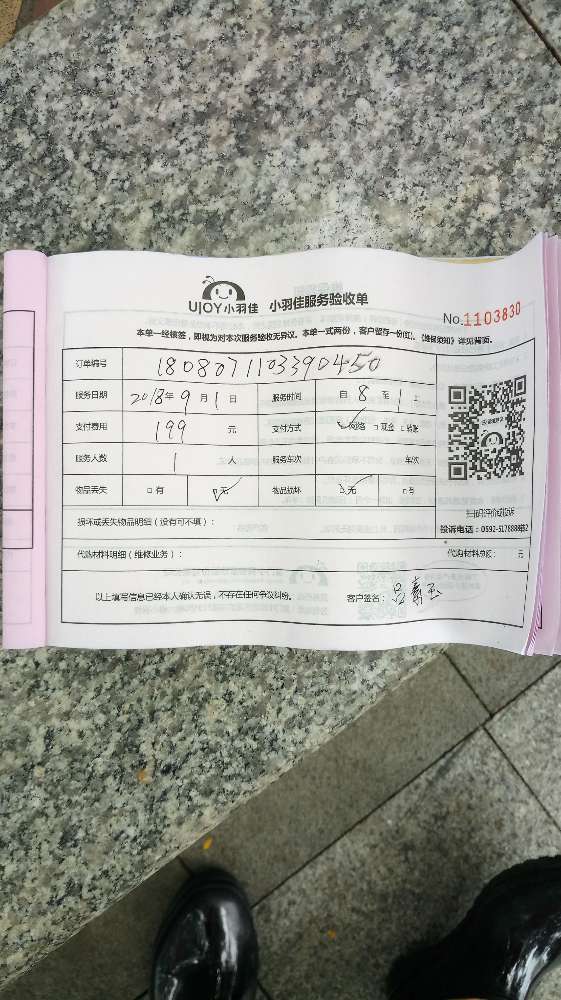 UJOY小羽佳 小羽佳服务验收单
No.1103830
本单一经核签，即视为对本次服务验收无异议。本单一式两份，客户留存一份(红)。《维保须知》详见背页。
订单编号 1808071103390450
服务日期 2018年9月1日 服务时间 自8至1
支付费用 199 元 支付方式 ✓网络 □现金 □转账
服务人数 1 人 服务车次 车次
物品丢失 □有 ✓无 物品损坏 ✓无 □有
扫码评价或投诉
损坏或丢失物品明细（没有可不填）：
投诉电话：0592-5178888
代购材料明细（维修业务）： 代购材料总额： 元
以上填写信息已经本人确认无误，不存在任何争议纠纷。 客户签名：